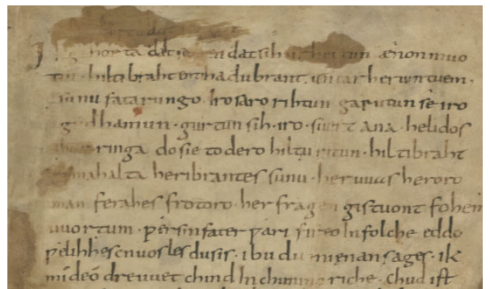 horta dat dat sih urhettun ænon muo
tin · hiltibraht enti hadubrant · untar heriun tuem ·
sunu fatarungo · iro saro rihtun garutun se iro
gudhamun · gurtun sih · iro · suert ana · helidos
ringa do sie to dero hiltu ritun · hiltibraht
gimahalta heribrantes sunu · her uuas heroro
man ferahes frotoro · her fragen gistuont fohem
uuortum · ƿer sin fater ƿari fireo in folche eddo
ƿelihhes cnuosles du sis · ibu du mi enan sages · ik
mi deo dre uuet chind in chuninc riche · chud ist